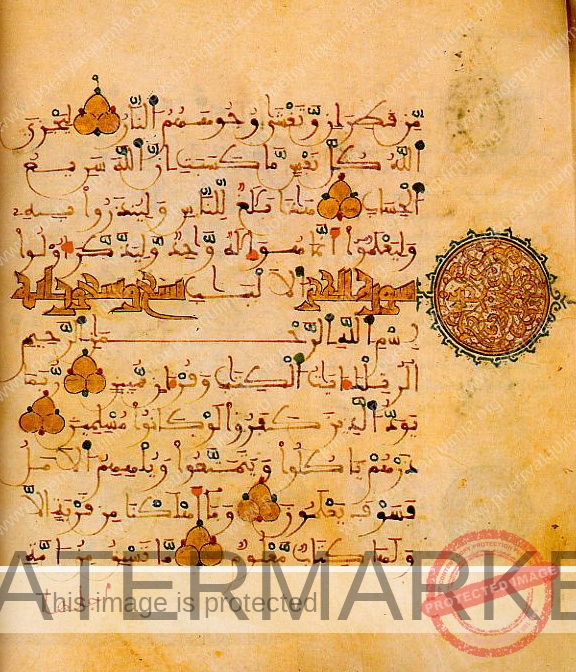 مِّن قَطِرَانٍ وَّتَغْشَىٰ وُجُوهَهُمُ النَّارُ لِيَجْزِيَ
اللَّهُ كُلَّ نَفْسٍ مَّا كَسَبَتْ إِنَّ اللَّهَ سَرِيعُ
الْحِسَابِ هَٰذَا بَلَٰغٌ لِّلنَّاسِ وَلِيُنذَرُوا بِهِ
وَلِيَعْلَمُوا أَنَّمَا هُوَ إِلَٰهٌ وَّٰحِدٌ وَّلِيَذَّكَّرَ أُولُوا
الْأَلْبَٰبِ سورة الحجر تسع وتسعون اية
بِسْمِ اللَّهِ الرَّحْمَٰنِ الرَّحِيمِ
الٓر تِلْكَ ءَايَٰتُ الْكِتَٰبِ وَقُرْءَانٍ مُّبِينٍ رُّبَمَا
يَوَدُّ الَّذِينَ كَفَرُوا لَوْ كَانُوا مُسْلِمِينَ
ذَرْهُمْ يَاكُلُوا وَيَتَمَتَّعُوا وَيُلْهِهِمُ الْأَمَلُ
فَسَوْفَ يَعْلَمُونَ وَمَا أَهْلَكْنَا مِن قَرْيَةٍ إِلَّا
وَلَهَا كِتَابٌ مَّعْلُومٌ مَّا تَسْبِقُ مِنْ أُمَّةٍ
ATERMARKE
This image is protected